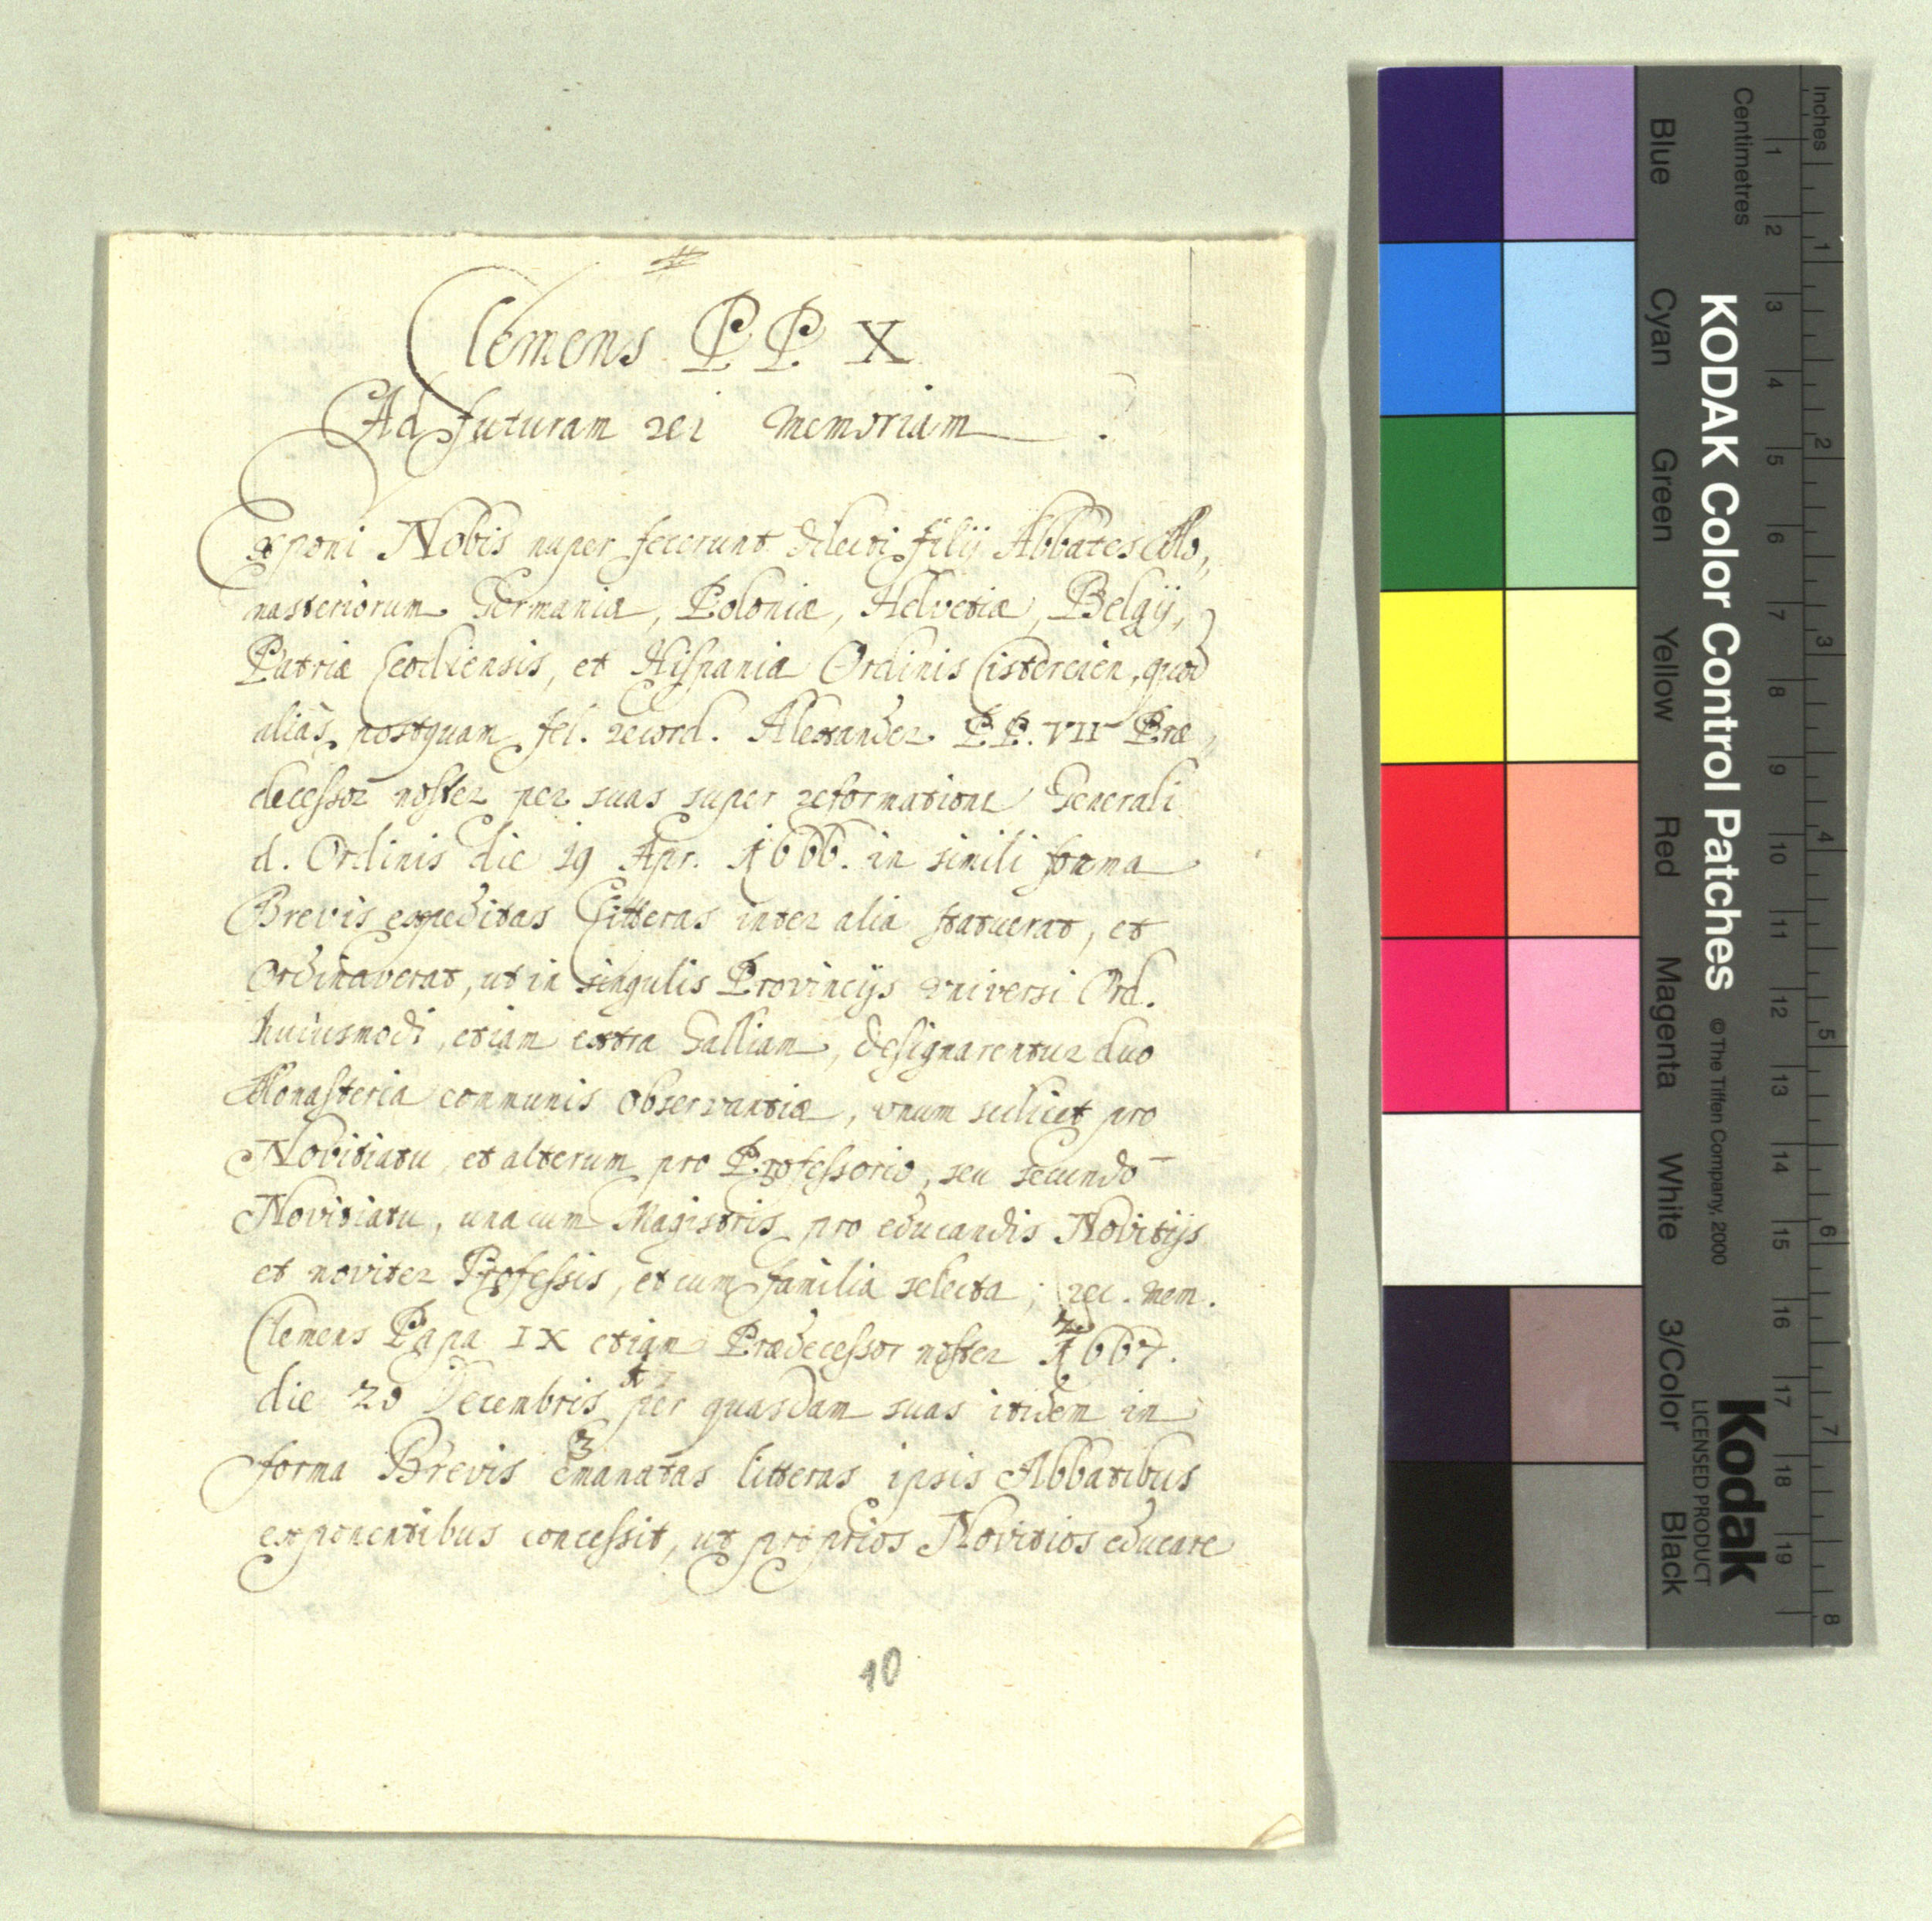 Clemens PP. X
Ad futuram rei memoriam.
Exponi Nobis nuper fecerunt dilecti filij Abbates Mo„
nasteriorum Germaniæ, Poloniæ, Helvetiæ, Belgij,
Patriæ Leodiensis, et Hispaniæ Ordinis Cistercien, quod
alias postquam fel. record. Alexander PP. VII Præ„
decessor noster per suas super reformatione Generali
d. Ordinis die 19 Apr. 1666. in simili forma
Brevis expeditas Litteras inter alia statuerat, et
Ordinaverat, ut in singulis Provincijs universi Ord.
huiusmodi, etiam extra Galliam, designarentur duo
Monasteria communis observantiæ, unum scilicet pro
Novitiatu, et alterum pro Professorio, seu secundo
Novitiatu, una cum Magistris pro educandis Novitijs
et noviter Professis, et cum familia selecta; rec. mem.
Clemens Papa IX etiam Prædecessor noster 1667.
die 20 Decembris per quasdam suas itidem in
forma Brevis emanatas litteras ipsis Abbatibus
exponentibus concessit, ut proprios Novitios educare
10
Inches
Centimetres
1 2 3 4 5 6 7 8 9 10 11 12 13 14 15 16 17 18 19
1 2 3 4 5 6 7 8
KODAK Color Control Patches © The Tiffen Company, 2000
Kodak
LICENSED PRODUCT
Blue Cyan Green Yellow Red Magenta White 3/Color Black